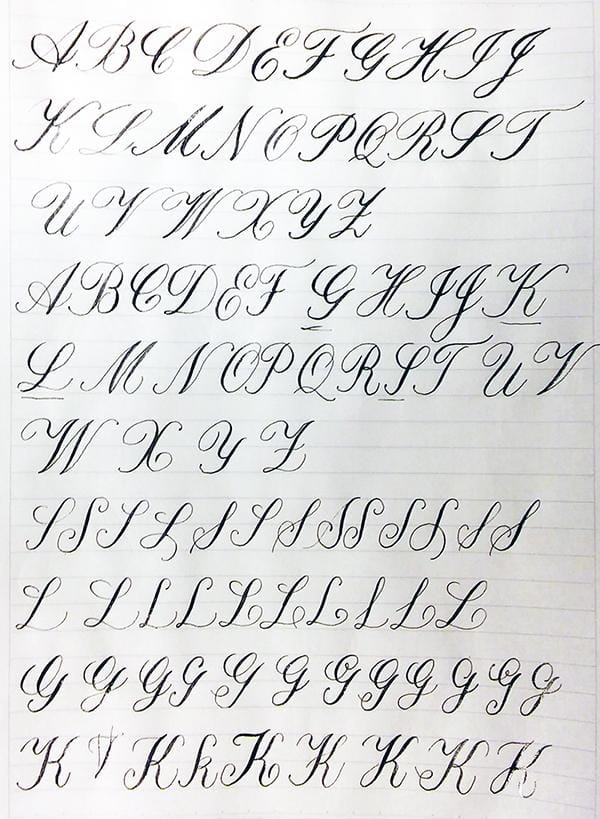 A B C D E F G H I J
K L M N O P Q R S T
U V W X Y Z
A B C D E F G H I J K
L M N O P Q R S T U V
W X Y Z
S S S S S S S S S S S S S
L L L L L L L L L L
G G G G G G G G G G G G
K K K K K K K K